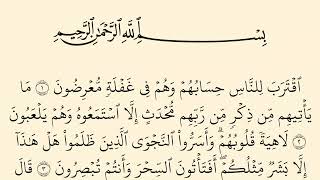 بِسْمِ ٱللَّهِ ٱلرَّحْمَٰنِ ٱلرَّحِيمِ
ٱقْتَرَبَ لِلنَّاسِ حِسَابُهُمْ وَهُمْ فِى غَفْلَةٍ مُّعْرِضُونَ ١ مَا
يَأْتِيهِم مِّن ذِكْرٍ مِّن رَّبِّهِم مُّحْدَثٍ إِلَّا ٱسْتَمَعُوهُ وَهُمْ يَلْعَبُونَ
٢ لَاهِيَةً قُلُوبُهُمْ ۗ وَأَسَرُّوا۟ ٱلنَّجْوَى ٱلَّذِينَ ظَلَمُوا۟ هَلْ هَٰذَآ
إِلَّا بَشَرٌ مِّثْلُكُمْ ۖ أَفَتَأْتُونَ ٱلسِّحْرَ وَأَنتُمْ تُبْصِرُونَ ٣ قَالَ